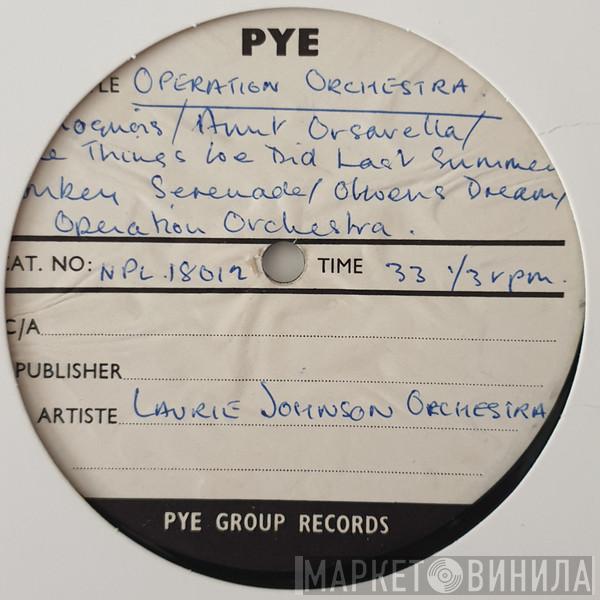 PYE
LE OPERATION ORCHESTRA.
oquois / Aunt Orsavella /
e Things We Did Last Summer
onkey Serenade / Olwens Dream,
Operation Orchestra.
CAT. NO: NPL.18012 TIME 33 1/3 rpm.
C/A
PUBLISHER
ARTISTE LAURIE JOHNSON ORCHESTRA
PYE GROUP RECORDS
МАРКЕТ ВИНИЛА